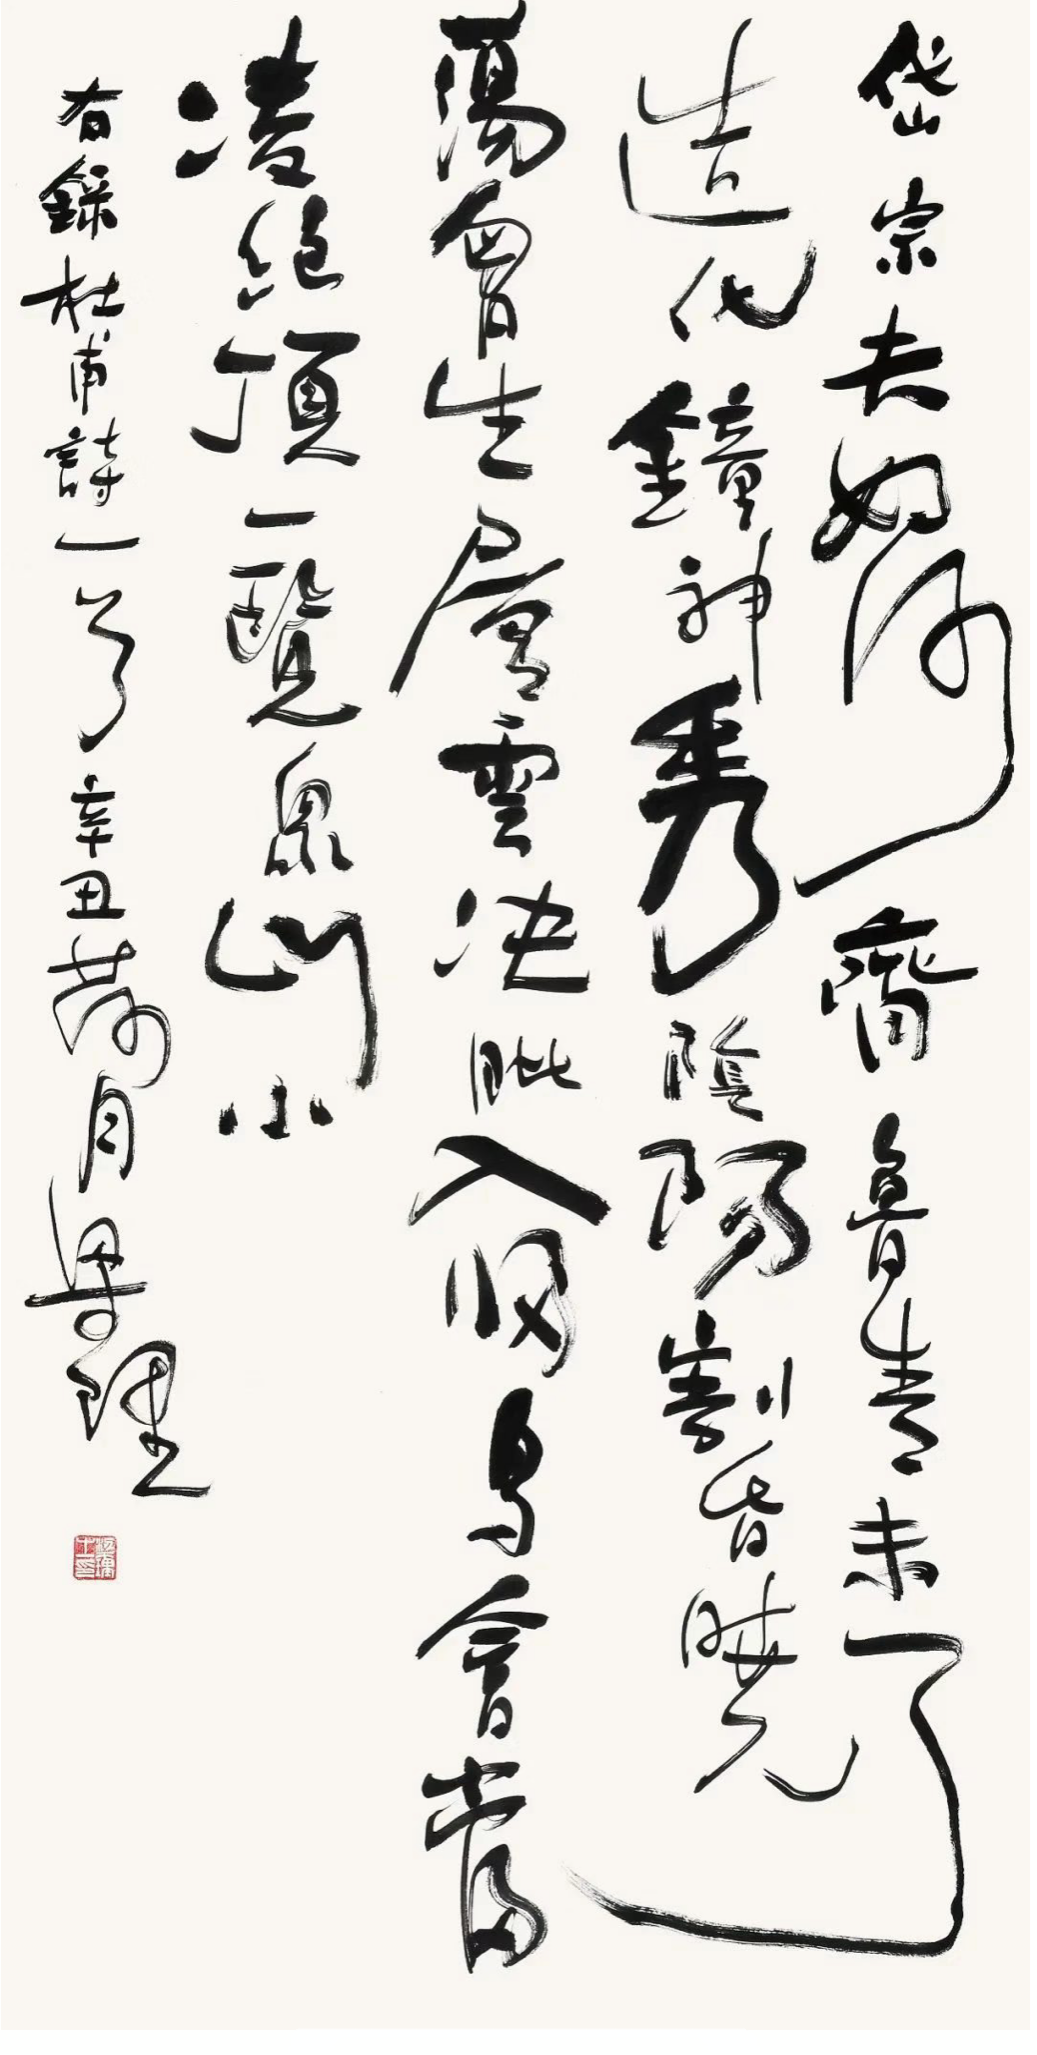 岱宗夫如何齊魯青未了
造化鐘神秀陰陽割昏曉
蕩胷生層雲决眦入歸鳥會當
凌絕頂一覽眾山小
右錄杜甫詩一首辛丑荷月